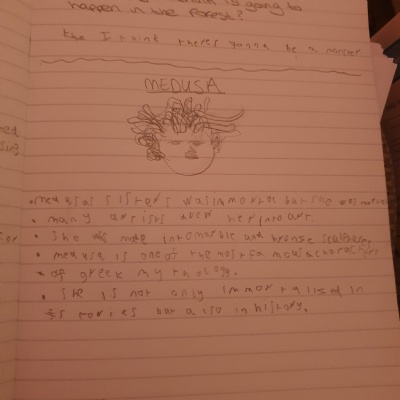 happen in the forest?
the I think theres gonna be a monster
MEDUSA
• medusas sisters was immortal but she was
• many artists her into art.
• She is made into marble and bronze
• medusa is one of the most famous
• of greek mythology.
• She is not only immortalised in
stories but also in history.